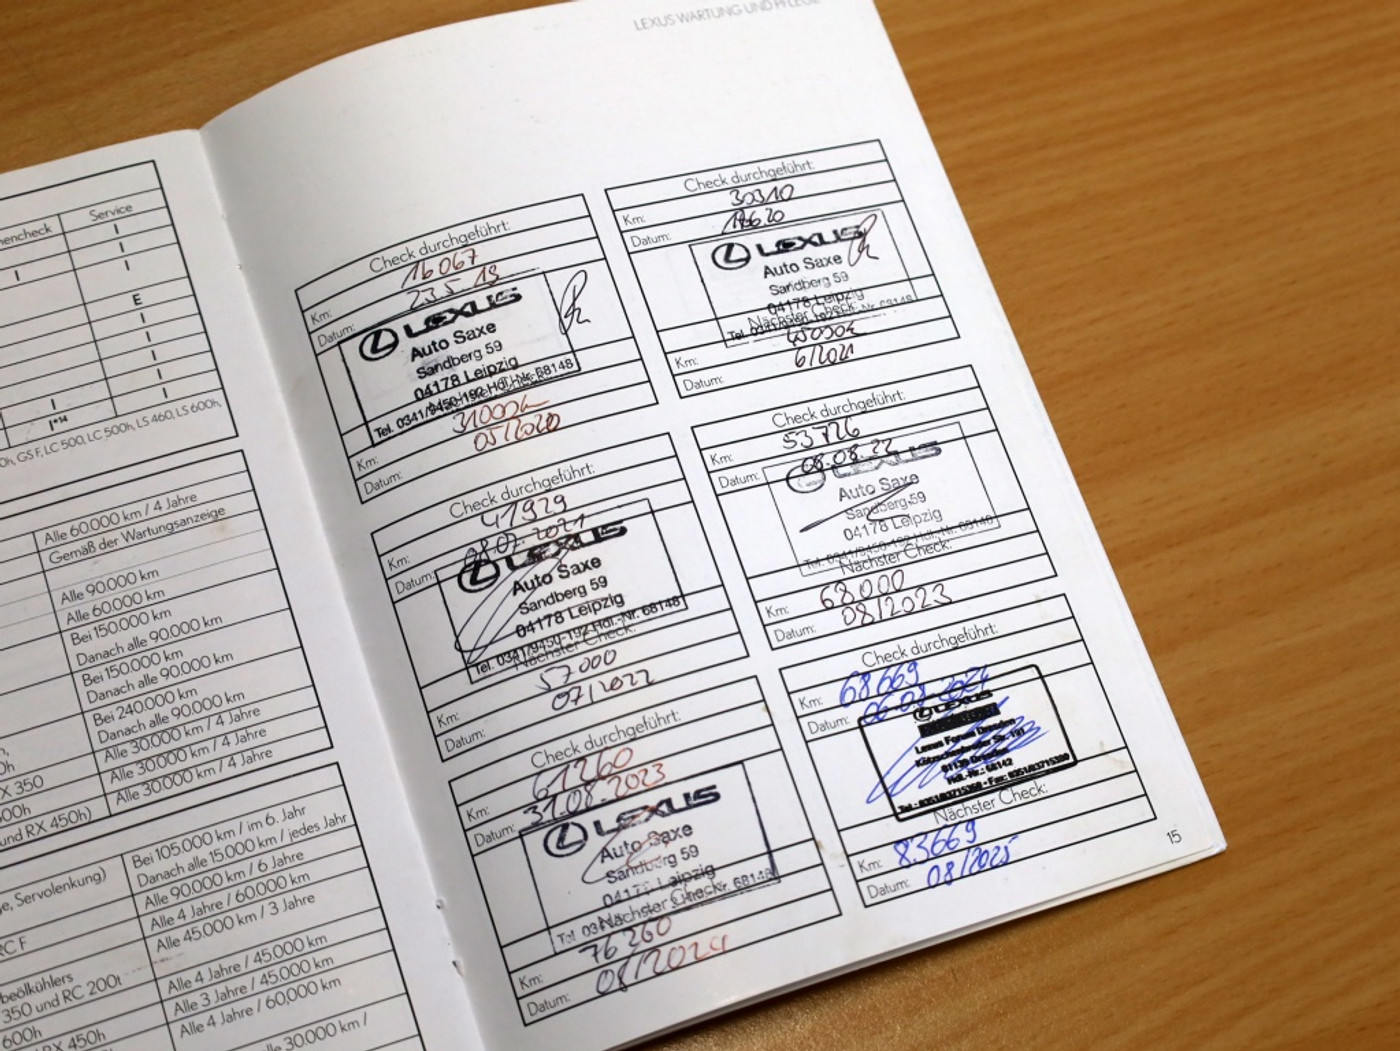 LEXUS WARTUNG UND PFLEGE
Service
I
I
I
I
E
I
I
I
I
I
I
I*¹⁴
I
GS F, LC 500, LC 500h, LS 460, LS 600h,
Alle 60.000 km / 4 Jahre
Gemäß der Wartungsanzeige
Alle 90.000 km
Alle 60.000 km
Bei 150.000 km
Danach alle 90.000 km
Bei 150.000 km
Danach alle 90.000 km
Bei 240.000 km
Danach alle 90.000 km
Alle 30.000 km / 4 Jahre
X 350
Alle 30.000 km / 4 Jahre
und RX 450h)
Alle 30.000 km / 4 Jahre
Bei 105.000 km / im 6. Jahr
Danach alle 15.000 km / jedes Jahr
Servolenkung)
Alle 90.000 km / 6 Jahre
Alle 4 Jahre / 60.000 km
RC F
Alle 45.000 km / 3 Jahre
350 und RC 200t
Alle 4 Jahre / 45.000 km
600h
Alle 3 Jahre / 45.000 km
RX 450h
Alle 4 Jahre / 60.000 km
30.000 km /
Check durchgeführt:
Km: 16067
Datum: 23.5.19
LEXUS
Auto Saxe
Sandberg 59
04178 Leipzig
Tel. 0341/9450-192 Hdl.-Nr. 68148
Km: 31000k
Datum: 05/2020
Check durchgeführt:
Km: 30310
Datum: 18.6.20
LEXUS
Auto Saxe
Sandberg 59
04178 Leipzig
Nächster Check:
Tel. 0341/9450-192 Hdl.-Nr. 68148
Km: 45000k
Datum: 6/2021
Check durchgeführt:
Km: 41929
Datum: 08.07.2021
LEXUS
Auto Saxe
Sandberg 59
04178 Leipzig
Tel. 0341/9450-192 Hdl.-Nr. 68148
Nächster Check:
Km: 57000
Datum: 07/2022
Check durchgeführt:
Km: 53726
Datum: 08.08.22
LEXUS
Auto Saxe
Sandberg 59
04178 Leipzig
Tel. 0341/9450-192 Hdl.-Nr. 68148
Nächster Check:
Km: 68.000
Datum: 08/2023
Check durchgeführt:
Km: 61260
Datum: 31.08.2023
LEXUS
Auto Saxe
Sandberg 59
04178 Leipzig
Nächster Check:
68148
Km: 76260
Datum: 08/2024
Check durchgeführt:
Km: 68669
Datum: 06.08.2024
LEXUS
Lexus Forum Dresden
Kötzschenbroder Str. 191
01139 Dresden
Hdl.-Nr.: 68142
Tel.: 0351/83715350 • Fax: 0351/83715390
Nächster Check:
Km: 83669
Datum: 08/2025
15